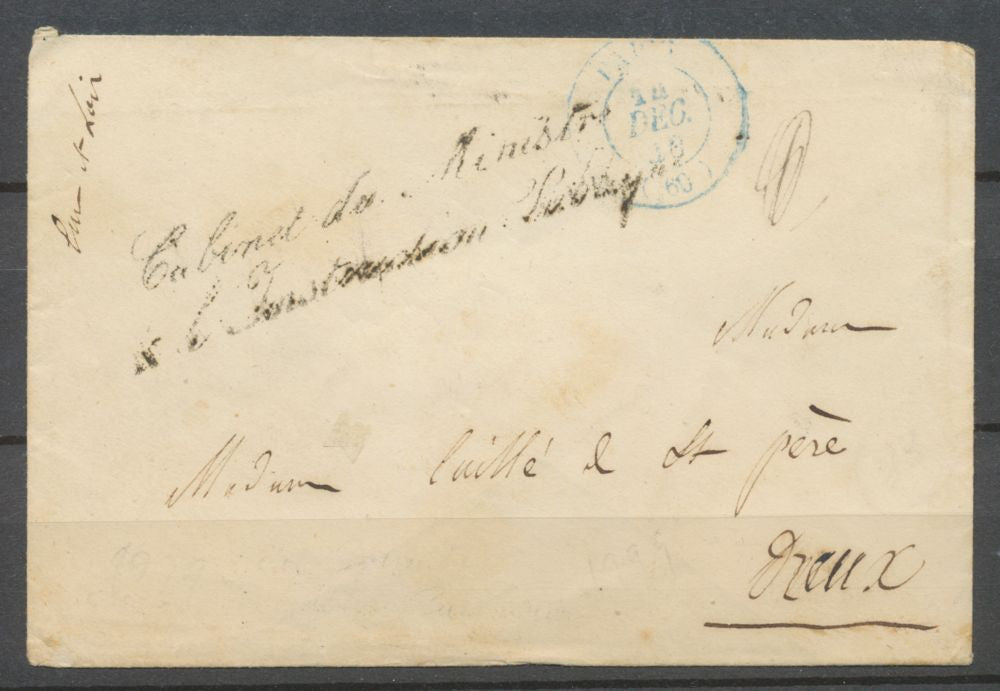 Eure et Loir
Cabinet du Ministre
de l'Instruction Publique
PARIS
DEC.
48
(60)
Madame
Madame Caillé de St père
Dreux